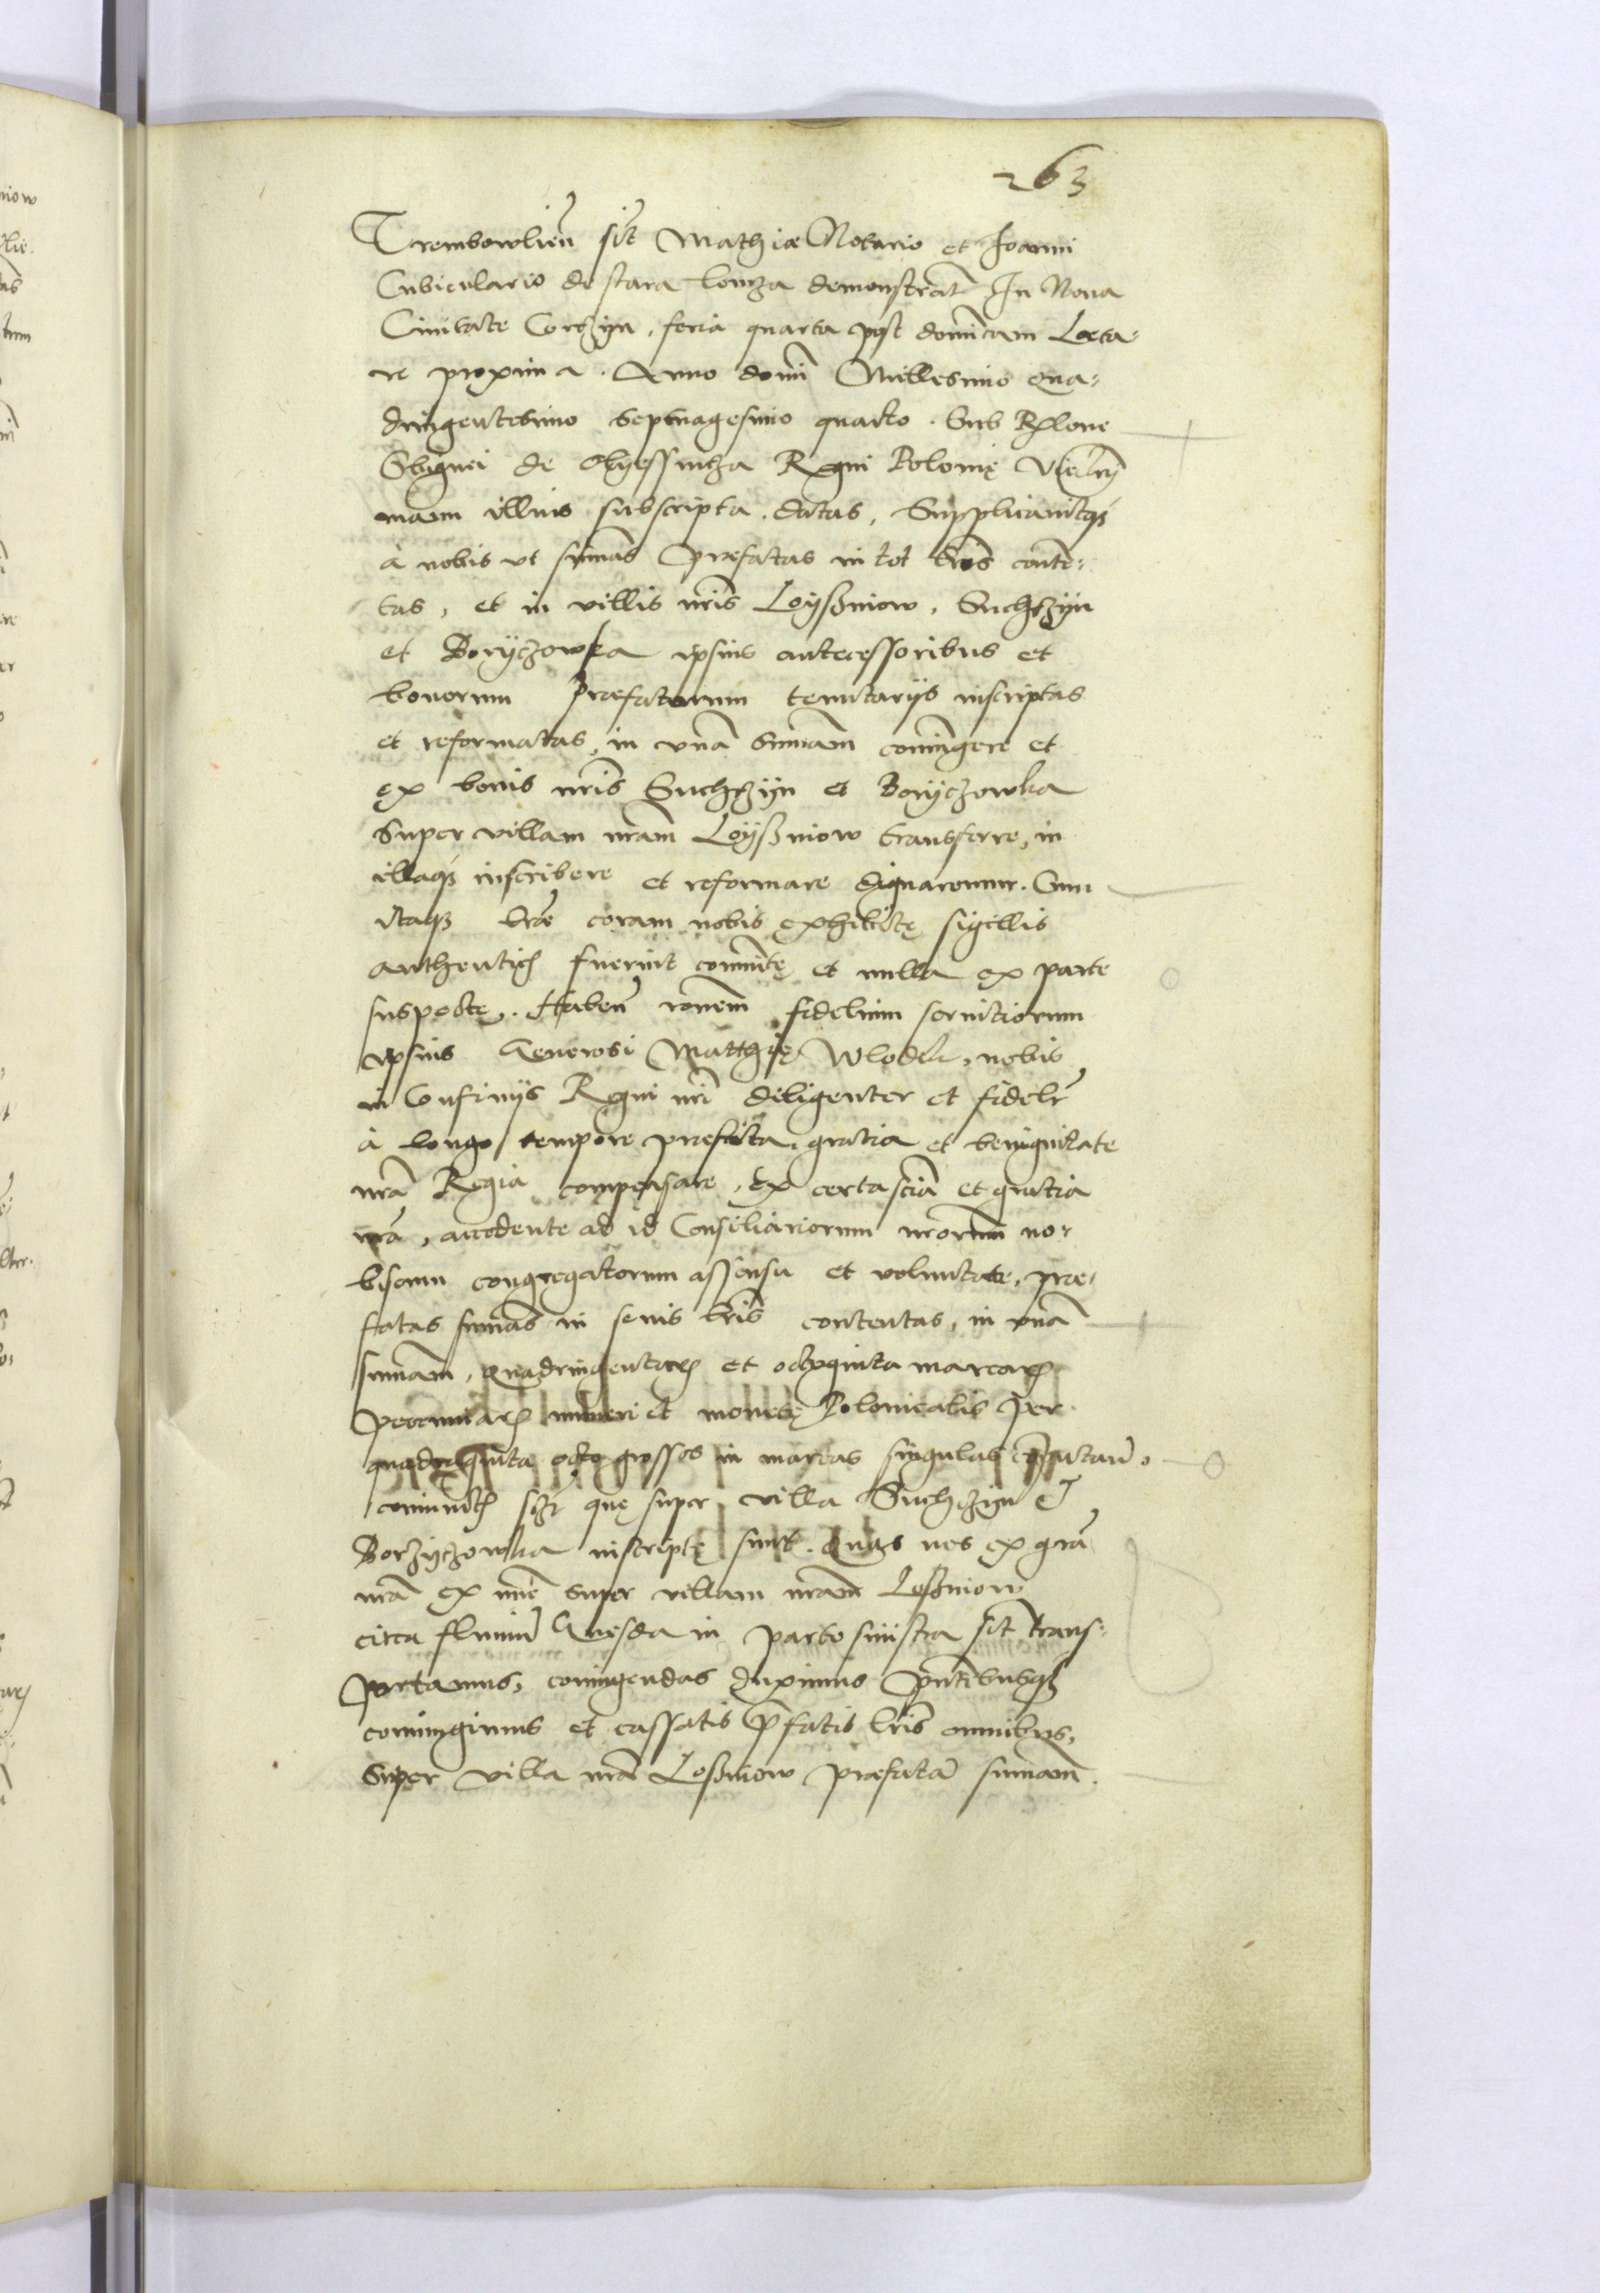 263
Trembowlien̄ sit̄ Mathiæ Notario et Joanni
Cubiculario de stara lomza demonstrat̄ In Noua
Ciuitate Corczyn, feria quarta post dominicam Læta-
re proxima. Anno domī Millesimo qua-
dringentesimo septuagesimo quarto. Sub Rel̄one
Sbignei de Olyessnicza Regni Polonię Vice
manu illius subscripta, datas, Supplicauitqȝ
à nobis vt sum̄as Præfatas in tot lr̄is conten-
tas, et in villis nr̄is Loyßniow, Suchczyn
et Boryczowka ipsius antecessoribus et
bonorum præfatorum tenutarijs inscriptas
et reformatas, in vnā Sum̄am coniungere et
ex bonis nr̄is Suchczyn et Boryczowka
super villam nr̄am Loyßniow transferre, in
illaqȝ inscribere et reformare dignaremur. Cum
itaqȝ lræ coram nobis exhibitę sigillis
authentic̄ fuerint com̄unitę et nulla ex parte
suspectę. Haben̄ rōnem fidelium seruitiorum
ipsius Generosi Matthię Wlodek, nobis
in Confinijs Regni nr̄i diligenter et fidelr̄
à longo tempore præstita, gratia et benignitate
nr̄a Regia compensare, Ex certa sciā et gratia
nr̄a, accedente ad id Consiliariorum nr̄orum no-
biscum congregatorum assensu et voluntate, præ-
fatas sum̄as in senis lr̄is contentas, in vnā
sum̄am, Quadringentar̄ et octoginta marcar̄
pecuniar̄ numeri et monetę Polonicalis per
quadraginta octo grossos in marcas singulas cōputan̄.
quę super villa Suchczyn et
Borzyczowka inscriptę sunt. Quas nos ex grā
nr̄a ex nunc super villam nr̄am Loßniow
circa fluuiū Gnesda in parte sinistra sit̄ trans-
portamus, coniungendas duximus p̄ntibusqȝ
coniungimus et cassatis p̄fatis lr̄is omnibus,
super villa nr̄a Loßniow præfatā sum̄am